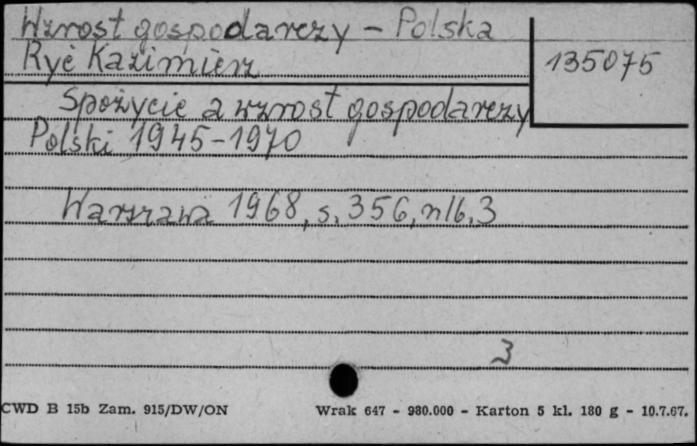 Wzrost gospodarczy - Polska
Ryć Kazimierz
135075
Spożycie a wzrost gospodarczy
Polski 1945-1970
Warszawa 1968, s. 356, nlb. 3
3
CWD B 15b Zam. 915/DW/ON Wrak 647 - 980.000 - Karton 5 kl. 180 g - 10.7.67.